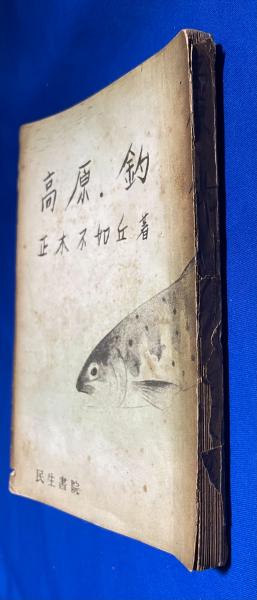 高原.釣
正木不如丘著
民生書院